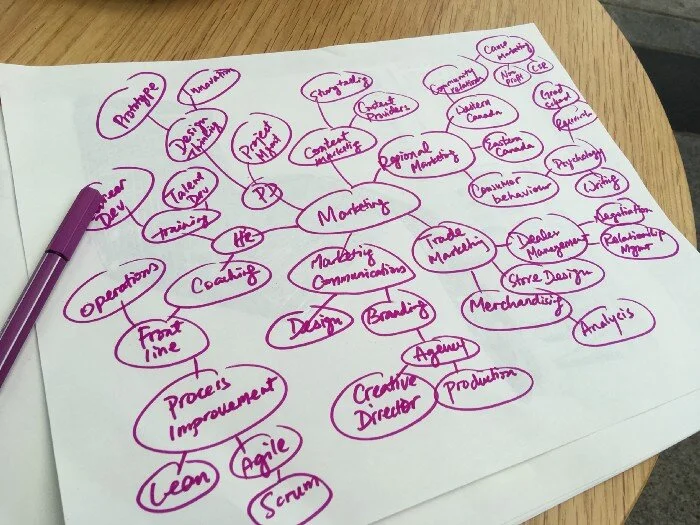 Cause
Marketing
Non
Profit
CSR
Community
relations
Storytelling
Content
Providers
Innovation
Prototype
Design
Thinking
Project
Mgmt
Content
Marketing
Regional
Marketing
Western
Canada
Eastern
Canada
Grad
school
Research
Psychology
Writing
Consumer
behaviour
PD
Marketing
Talent
Dev
Career
Dev
training
HR
Coaching
Operations
Front
line
Process
Improvement
Lean
Agile
Scrum
Marketing
Communications
Design
Branding
Agency
Creative
Director
Production
Trade
Marketing
Dealer
Management
Negotiation
Relationship
Mgmt
Store Design
Merchandising
Analysis